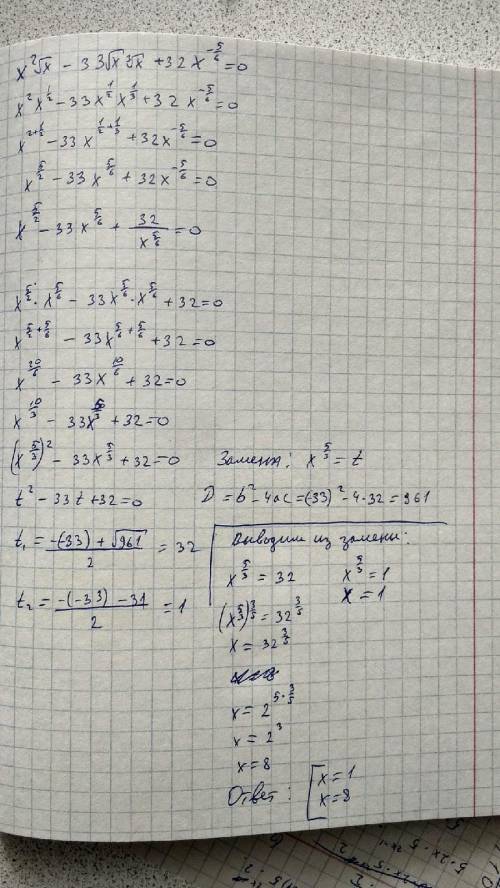 x²√x - 33√x ³√x + 32x^(-5/6) = 0
x² x^(1/2) - 33x^(1/2) x^(1/3) + 32x^(-5/6) = 0
x^(2+1/2) - 33x^(1/2+1/3) + 32x^(-5/6) = 0
x^(5/2) - 33x^(5/6) + 32x^(-5/6) = 0
x^(5/2) - 33x^(5/6) + 32/x^(5/6) = 0
x^(5/2) · x^(5/6) - 33x^(5/6) · x^(5/6) + 32 = 0
x^(5/2+5/6) - 33x^(5/6+5/6) + 32 = 0
x^(20/6) - 33x^(10/6) + 32 = 0
x^(10/3) - 33x^(5/3) + 32 = 0
(x^(5/3))² - 33x^(5/3) + 32 = 0 Замена: x^(5/3) = t
t² - 33t + 32 = 0 D = b² - 4ac = (-33)² - 4·32 = 961
t₁ = (-(-33) + √961)/2 = 32
t₂ = (-(-33) - 31)/2 = 1
Выводим из замены:
x^(5/3) = 32 x^(5/3) = 1
(x^(5/3))^(3/5) = 32^(3/5) x = 1
x = 32^(3/5)
x = 2^(5·3/5)
x = 2³
x = 8
Ответ: [x = 1
x = 8